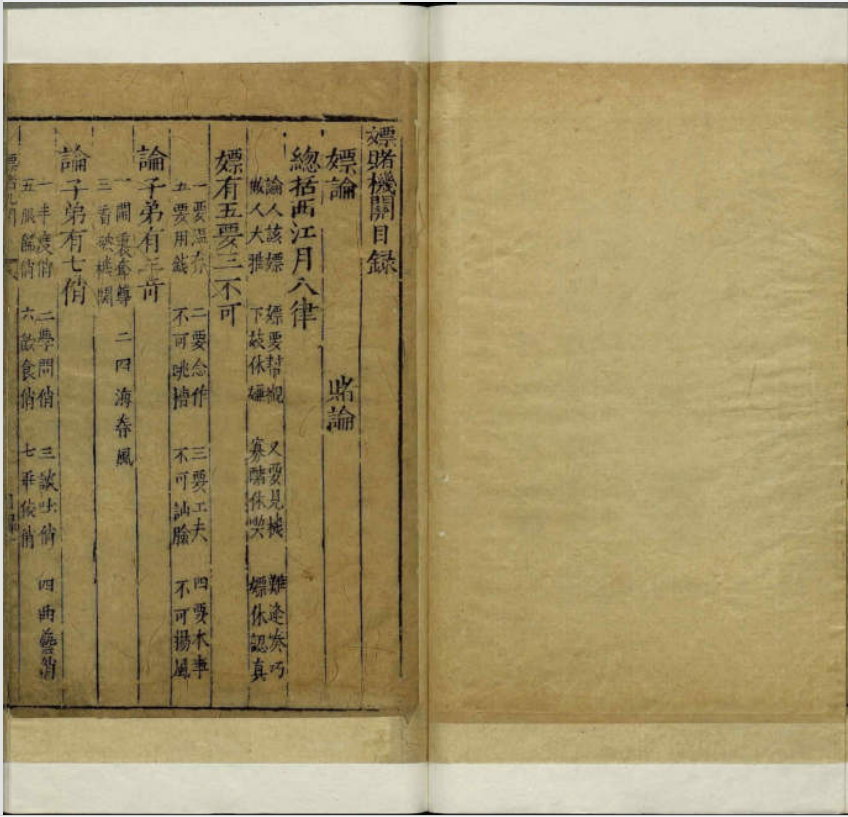 嫖賭機關目錄
嫖論 賭論
總括西江月八律
論人該嫖 嫖要幫襯 又要見機 難逢湊巧
做人大雅 下妓休嫌 寡醋休喫 嫖休認真
嫖有五要三不可
一要溫存 二要念作 三要工夫 四要本事
五要用錢 不可跳槽 不可訕臉 不可揚風
論子弟有三奇
一 二四海春風
三看破機關
論子弟有七俏
一丰度俏 二學問俏 三談吐俏 四曲藝俏
五服飾俏 六飲食俏 七乖俏